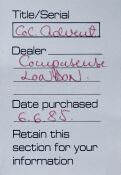 Title/Serial
CoC. Advent.
Dealer
Compusense
London.
Date purchased
6.6.85.
Retain this
section for your
information